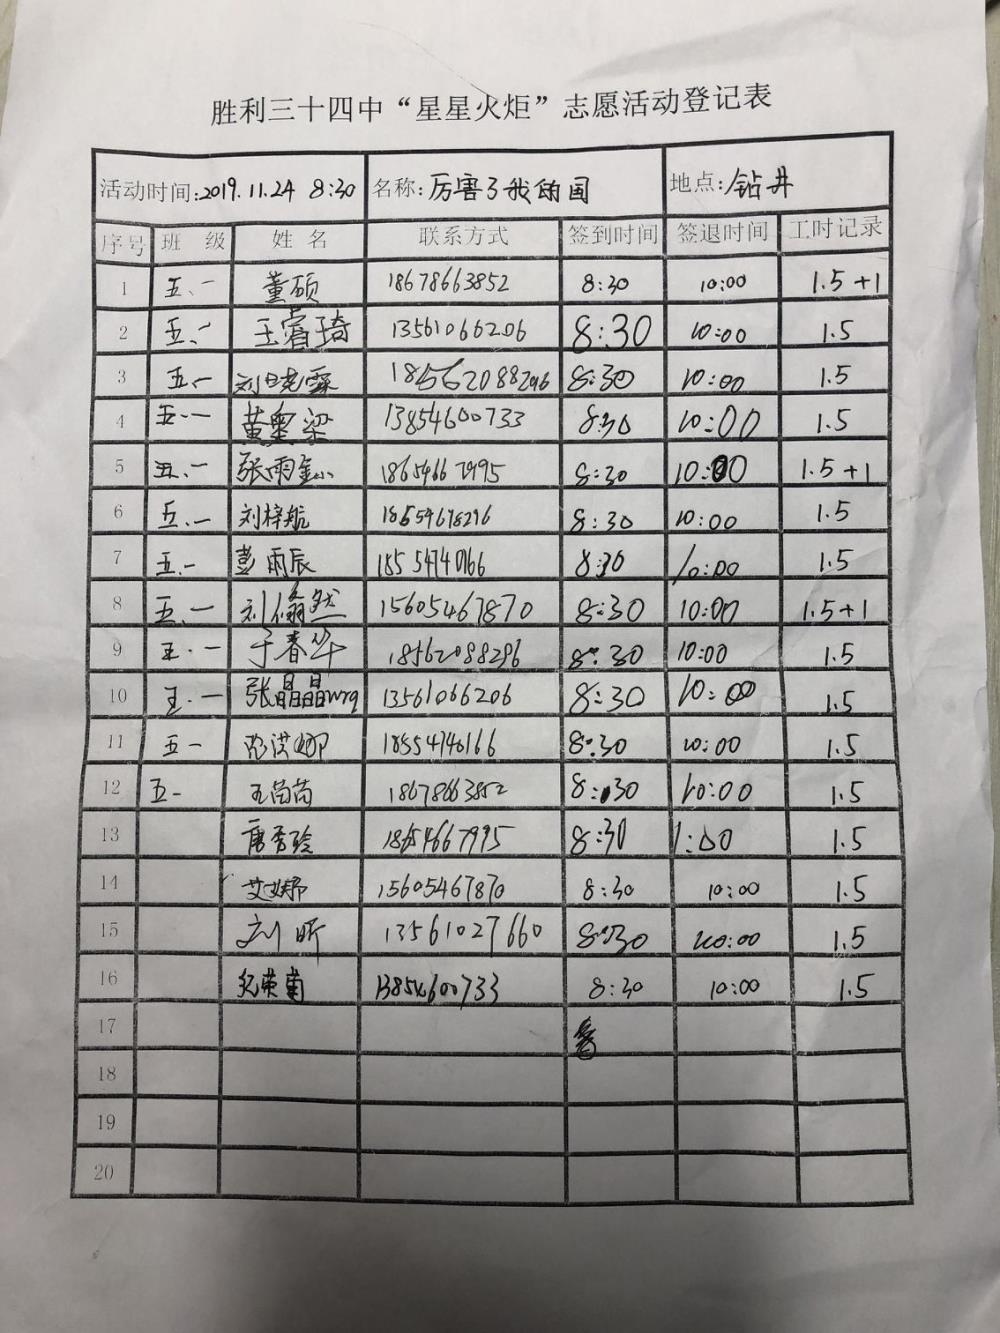 胜利三十四中“星星火炬”志愿活动登记表
活动时间:2019.11.24 8:30 名称:厉害了我的国 地点:钻井
序号 班 级 姓 名 联系方式 签到时间 签退时间 工时记录
1 五、一 董硕 18678663852 8:30 10:00 1.5+1
2 五、一 王睿琦 13561066206 8:30 10:00 1.5
3 五、一 刘晓霖 18562088296 8:30 10:00 1.5
4 五、一 黄奥梁 13854600733 8:30 10:00 1.5
5 五、一 张雨 18654667995 8:30 10:00 1.5+1
6 五、一 刘梓航 8:30 10:00 1.5
7 五、一 彭雨辰 18554740166 8:30 10:00 1.5
8 五、一 刘翛然 15605467870 8:30 10:00 1.5+1
9 五·一 于春华 18562088296 8:30 10:00 1.5
10 五·一 张晶晶 13561066206 8:30 10:00 1.5
11 五一 18554740166 8:30 10:00 1.5
12 五一 王苗苗 18678663852 8:30 10:00 1.5
13 唐秀玲 18654667995 8:30 1:00 1.5
14 艾娜 15605467870 8:30 10:00 1.5
15 刘昕 13561027660 8:30 10:00 1.5
16 纪荣菊 13854600733 8:30 10:00 1.5
17
18
19
20